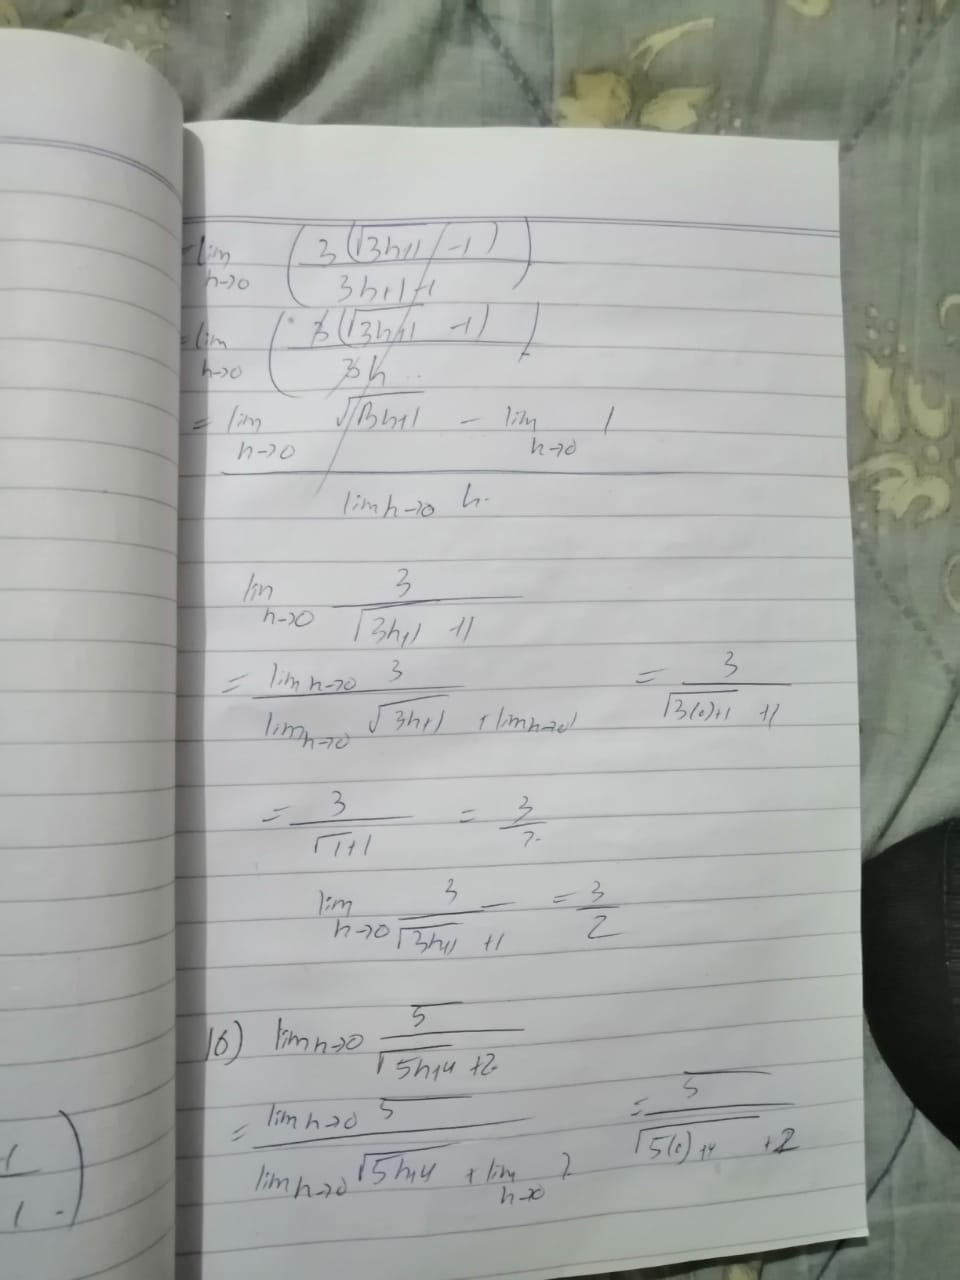 = lim h→0 ( 3(√3h+1 -1) / 3h+1-1 )
= lim h→0 ( 3(√3h+1 -1) / 3h )
= lim h→0 √3h+1 - lim h→0 1
lim h→0 h
lim h→0 3 / √3h+1 +1
= lim h→0 3 / lim h→0 √3h+1 + lim h→0 1 = 3 / √3(0)+1 +1
= 3 / √1+1 = 3/2
lim h→0 3 / √3h+1 +1 = 3/2
16) lim h→0 5 / √5h+4 +2
= lim h→0 5 / lim h→0 √5h+4 + lim h→0 2 = 5 / √5(0)+4 +2
1
1